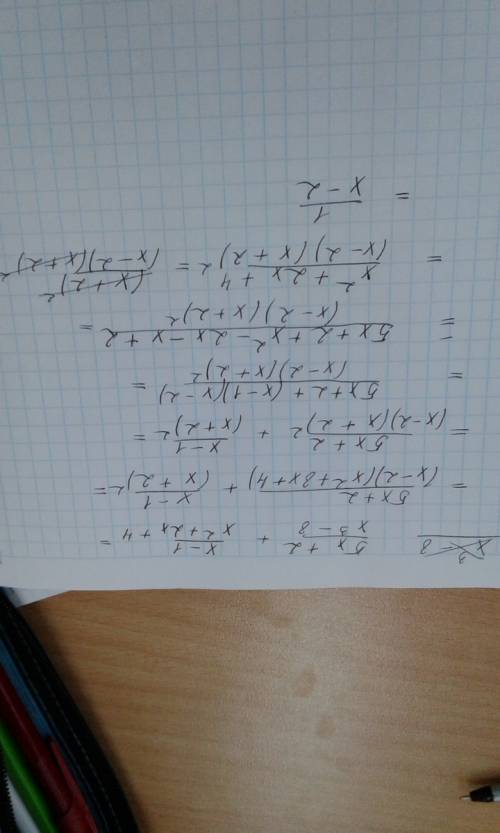 x³ - 8
(5x + 2)/(x³ - 8) + (x - 1)/(x² + 2x + 4) =
= (5x + 2)/((x - 2)(x² + 8x + 4)) + (x - 1)/(x + 2)² =
= (5x + 2)/((x - 2)(x + 2)²) + (x - 1)/(x + 2)² =
= (5x + 2 + (x - 1)(x - 2))/((x - 2)(x + 2)²) =
= (5x + 2 + x² - 2x - x + 2)/((x - 2)(x + 2)²) =
= (x² + 2x + 4)/((x - 2)(x + 2)²) = (x + 2)²/((x - 2)(x + 2)²)
= 1/(x - 2)